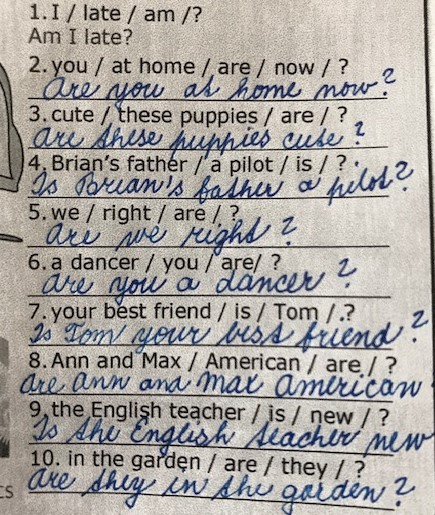 1. I / late / am /?
Am I late?
2. you / at home / are / now / ?
Are you at home now?
3. cute / these puppies / are / ?
are these puppies cute?
4. Brian's father / a pilot / is / ?
Is Brian's father a pilot?
5. we / right / are / ?
are we right?
6. a dancer / you / are/ ?
are you a dancer?
7. your best friend / is / Tom /.?
Is Tom your best friend?
8. Ann and Max / American / are / ?
are ann and max american
9. the English teacher / is / new / ?
Is the English teacher new
10. in the garden / are / they / ?
are they in the garden?
CS